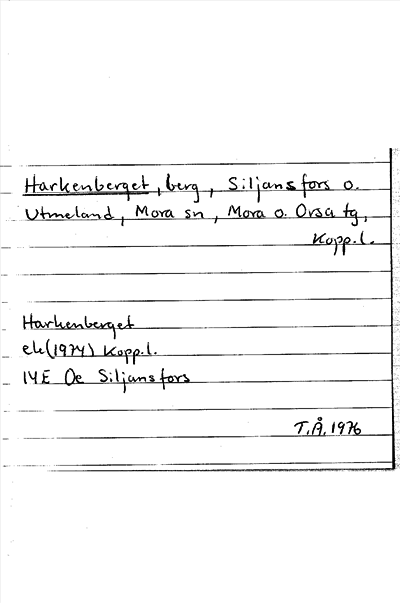 Harkenberget, berg, Siljansfors o.
Utmeland, Mora sn, Mora o. Orsa tg,
Kopp.l.
Harkenberget
ek(1974) Kopp.l.
14E 0e Siljansfors
T.Å. 1976